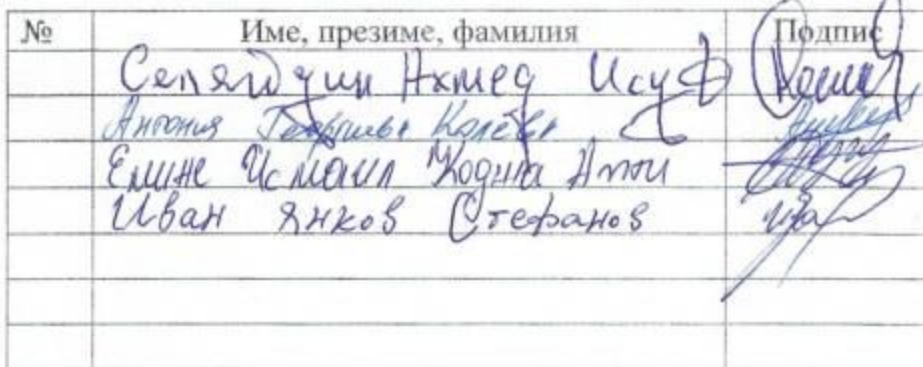 № Име, презиме, фамилия Подпис
Ахмед Исуф
Антония Георгиева Колева
Емине Исмаил Ходжа
Иван Янков Стефанов